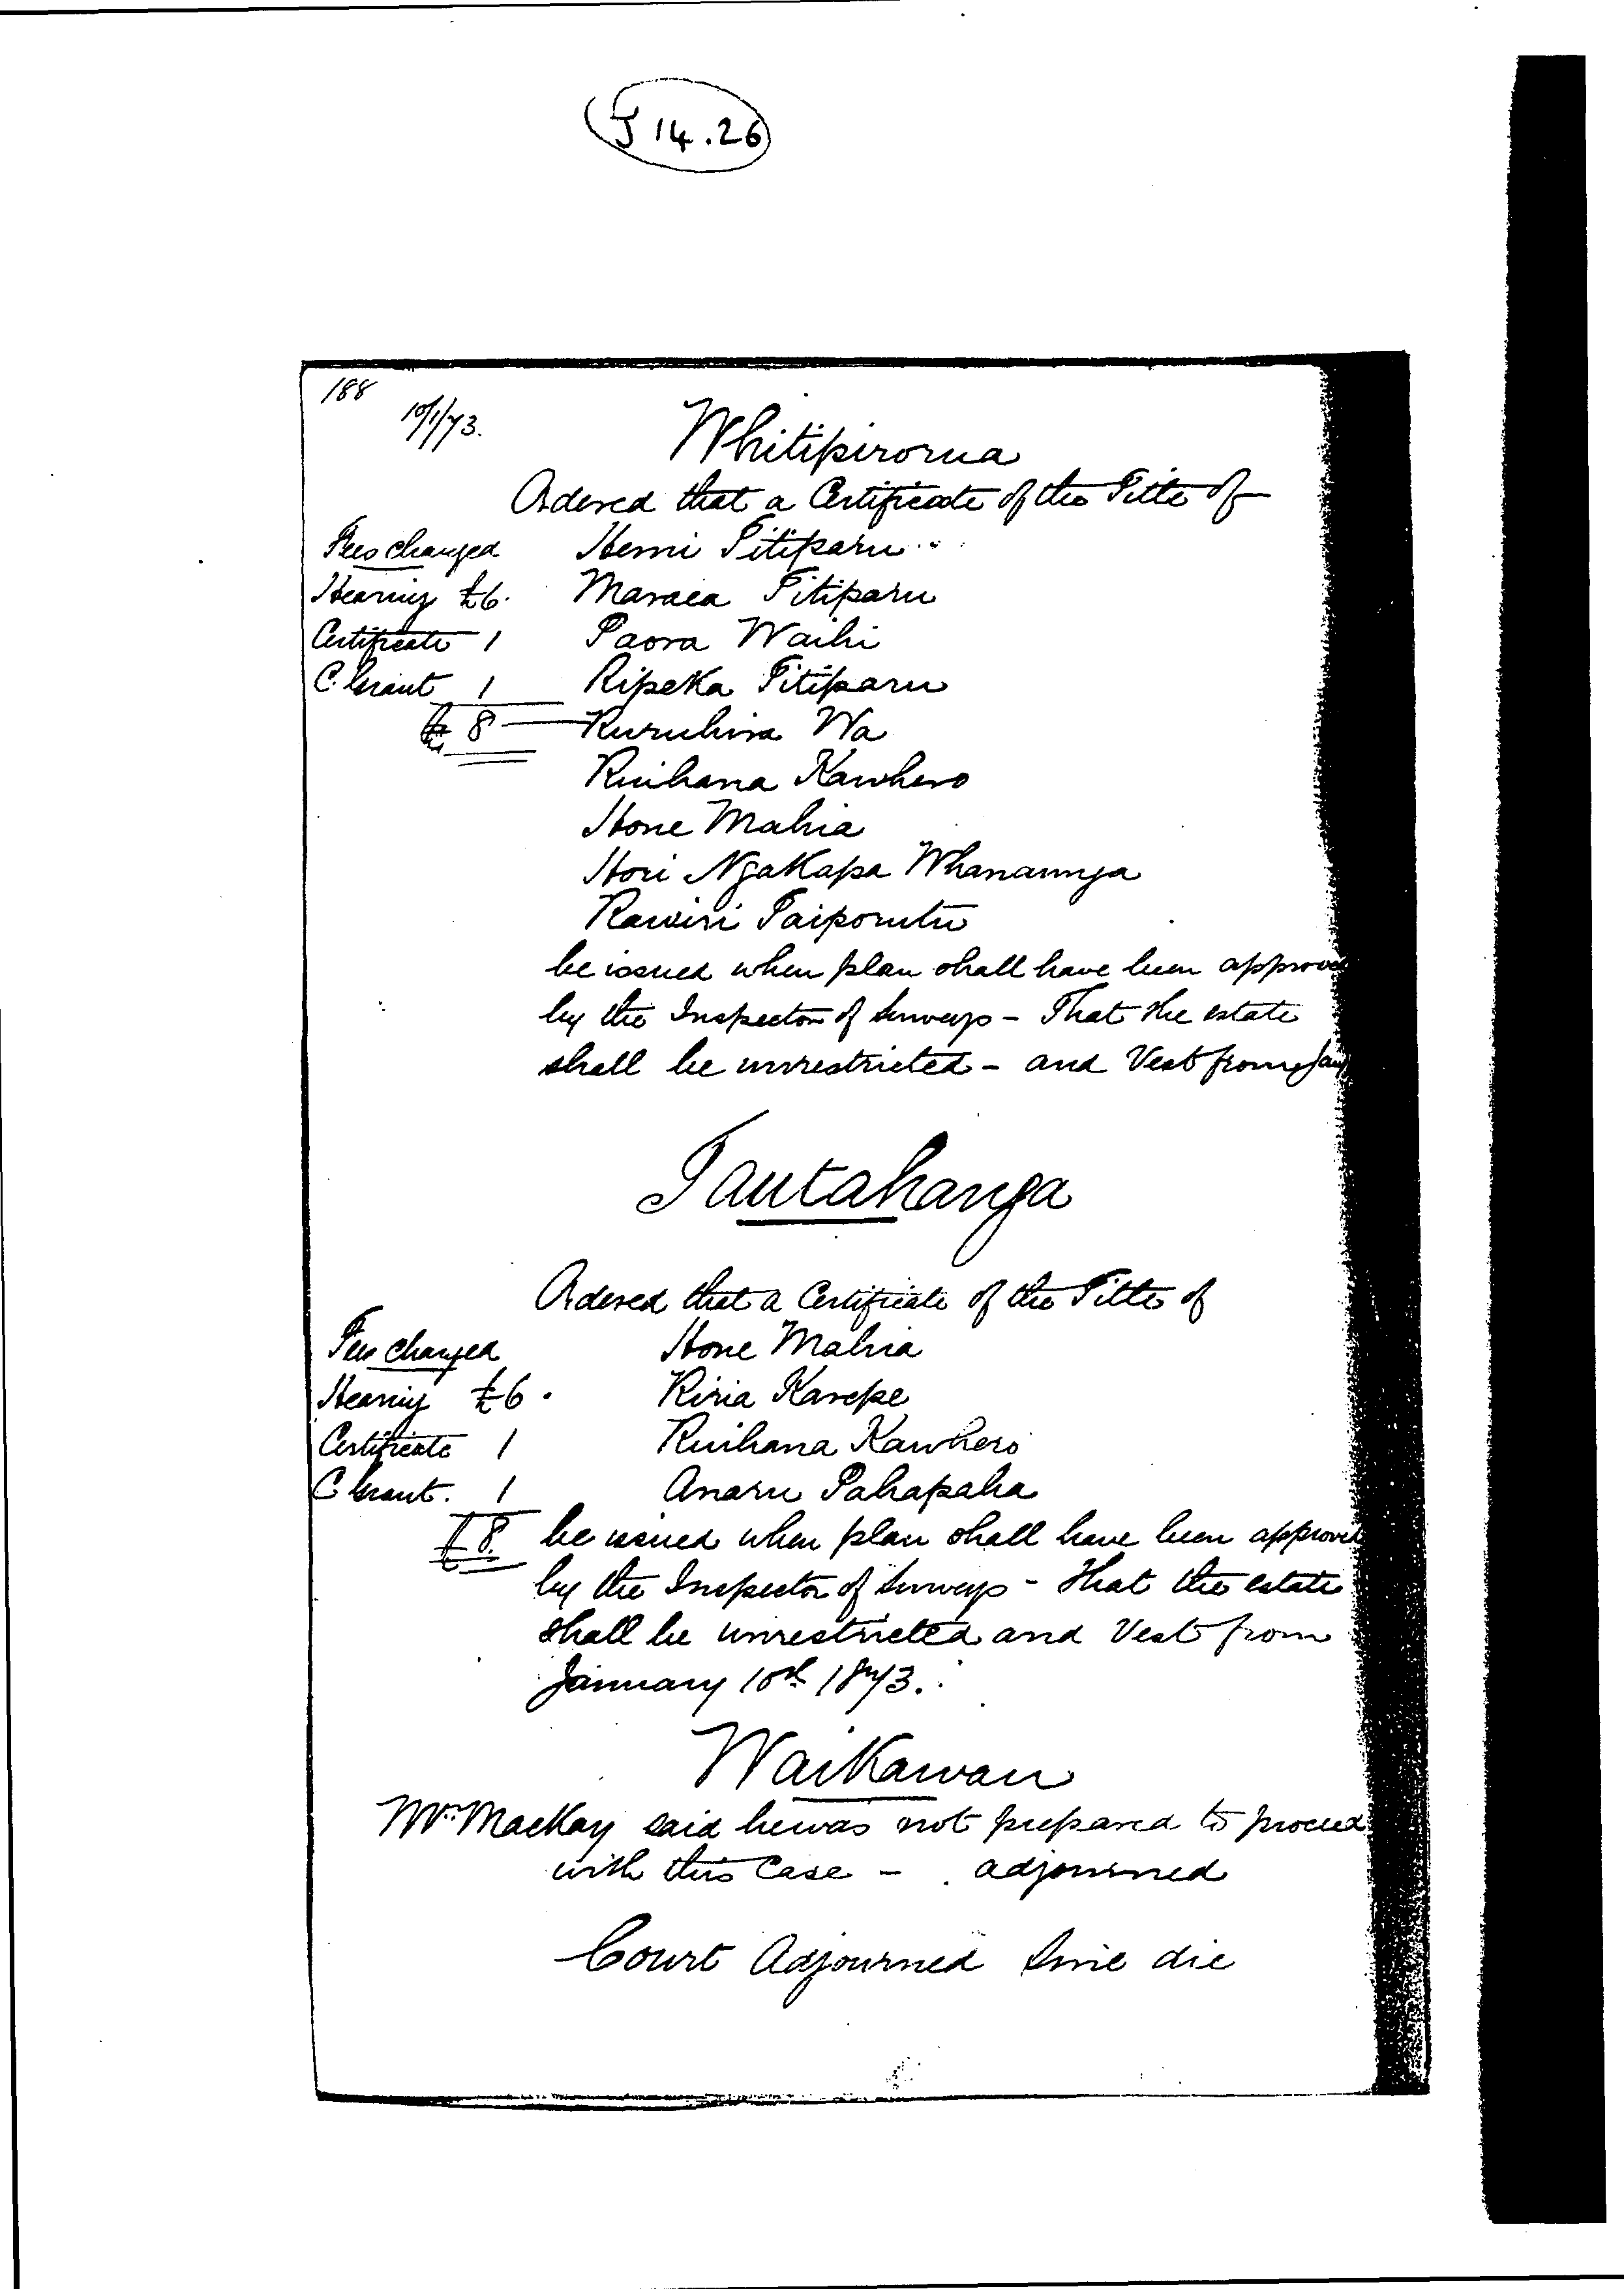 J 14.26
188
10/1/73.
Whitipirorua
Ordered that a Certificate of the Title of
Fees charged Hemi Titiparu
Hearing £6. Maraea Titiparu
Certificate 1 Paora Waihi
C. Grant 1 Ripeka Titiparu
£ 8 Kuruhina Wa
Ruihana Kawhero
Hone Mahia
Hori Ngakapa Whanaunga
Rawiri Taiporutu
be issued when plan shall have been approved
by the Inspector of Surveys - That the estate
shall be unrestricted - and Vest from
Tautahanga
Ordered that a Certificate of the Title of
Fees charged Hone Mahia
Hearing £6. Riria Karepe
Certificate 1 Ruihana Kawhero
C. Grant. 1 Anaru Pahapaha
£ 8. be issued when plan shall have been approved
by the Inspector of Surveys - that the estate
shall be unrestricted and Vest from
January 10th 1873.
Waikawau
Mr. Mackay said he was not prepared to proceed
with this Case - adjourned
Court Adjourned Sine die